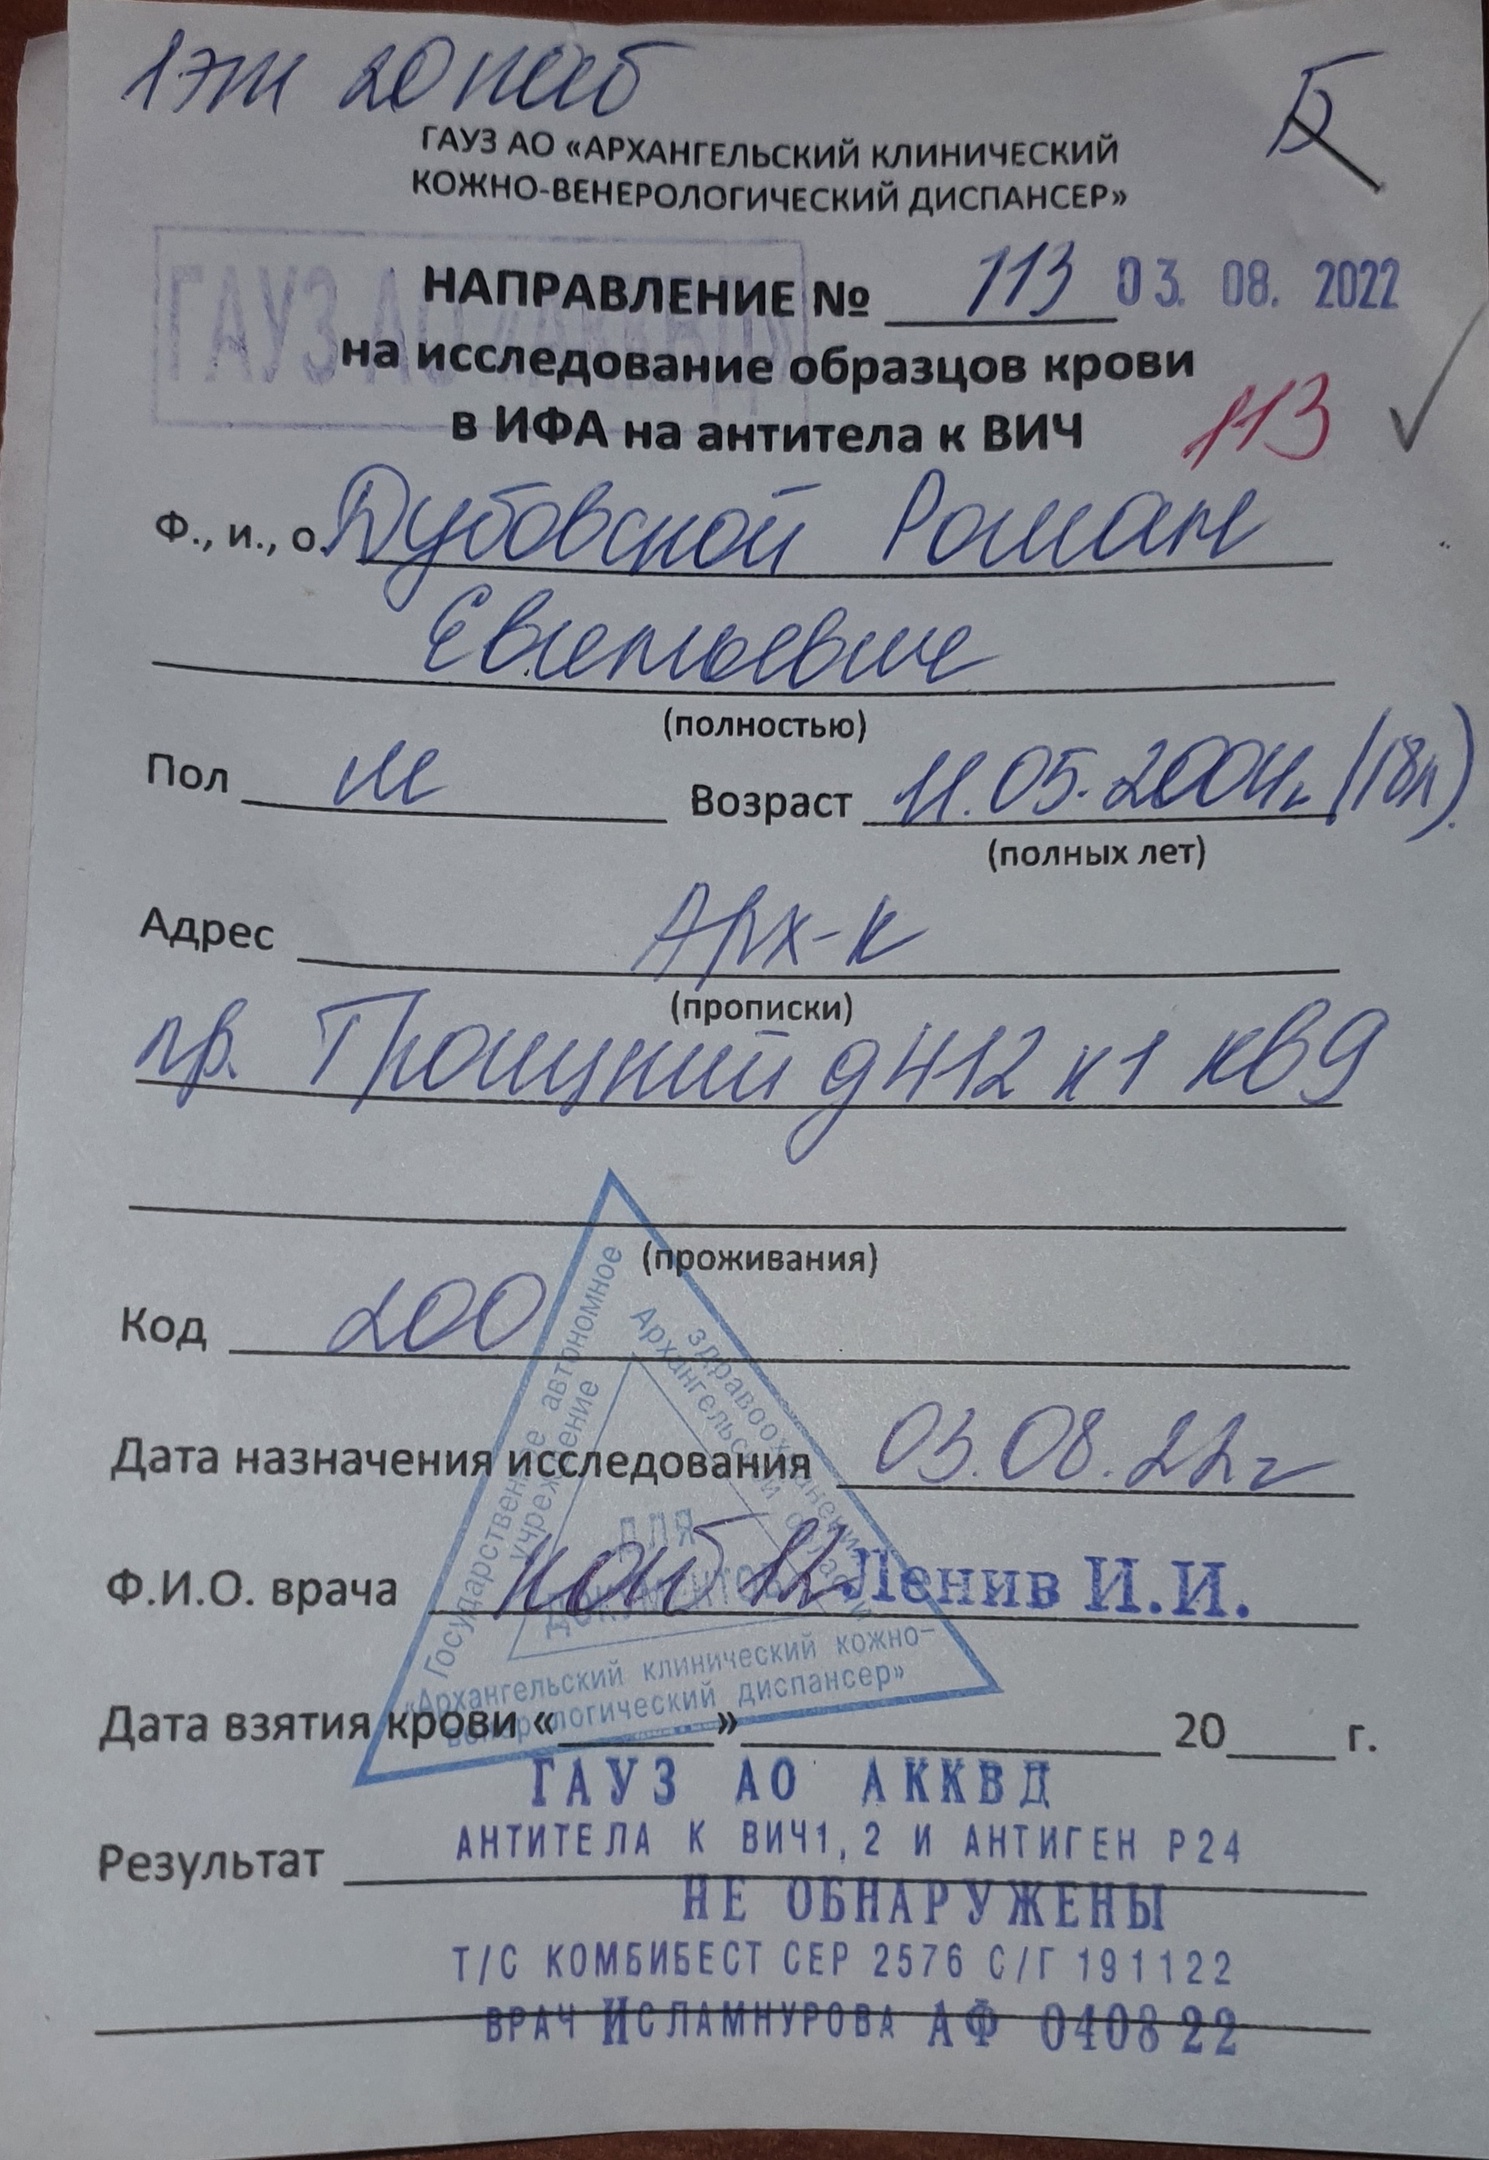 1эт 20 каб
Б
ГАУЗ АО «АРХАНГЕЛЬСКИЙ КЛИНИЧЕСКИЙ
КОЖНО-ВЕНЕРОЛОГИЧЕСКИЙ ДИСПАНСЕР»
ГАУЗ АО «АККВД»
НАПРАВЛЕНИЕ № 113 03. 08. 2022
на исследование образцов крови
в ИФА на антитела к ВИЧ 113
Ф., и., о. Дубовской Роман
Евгеньевич
(полностью)
Пол м Возраст 11.05.2004г. (18л).
(полных лет)
Адрес Арх-к
(прописки)
пр. Троицкий д 412 к 1 кв 9
(проживания)
Код 200
Дата назначения исследования 03.08.22г
Ф.И.О. врача каб 12 Ленив И.И.
Государственное автономное
учреждение
здравоохранения
Архангельской области
ДЛЯ
ДОКУМЕНТОВ
«Архангельский клинический кожно-
венерологический диспансер»
Дата взятия крови «____»____ 20____ г.
ГАУЗ АО АККВД
Результат АНТИТЕЛА К ВИЧ1,2 И АНТИГЕН Р24
НЕ ОБНАРУЖЕНЫ
Т/С КОМБИБЕСТ СЕР 2576 С/Г 191122
ВРАЧ ИСЛАМНУРОВА АФ 040822